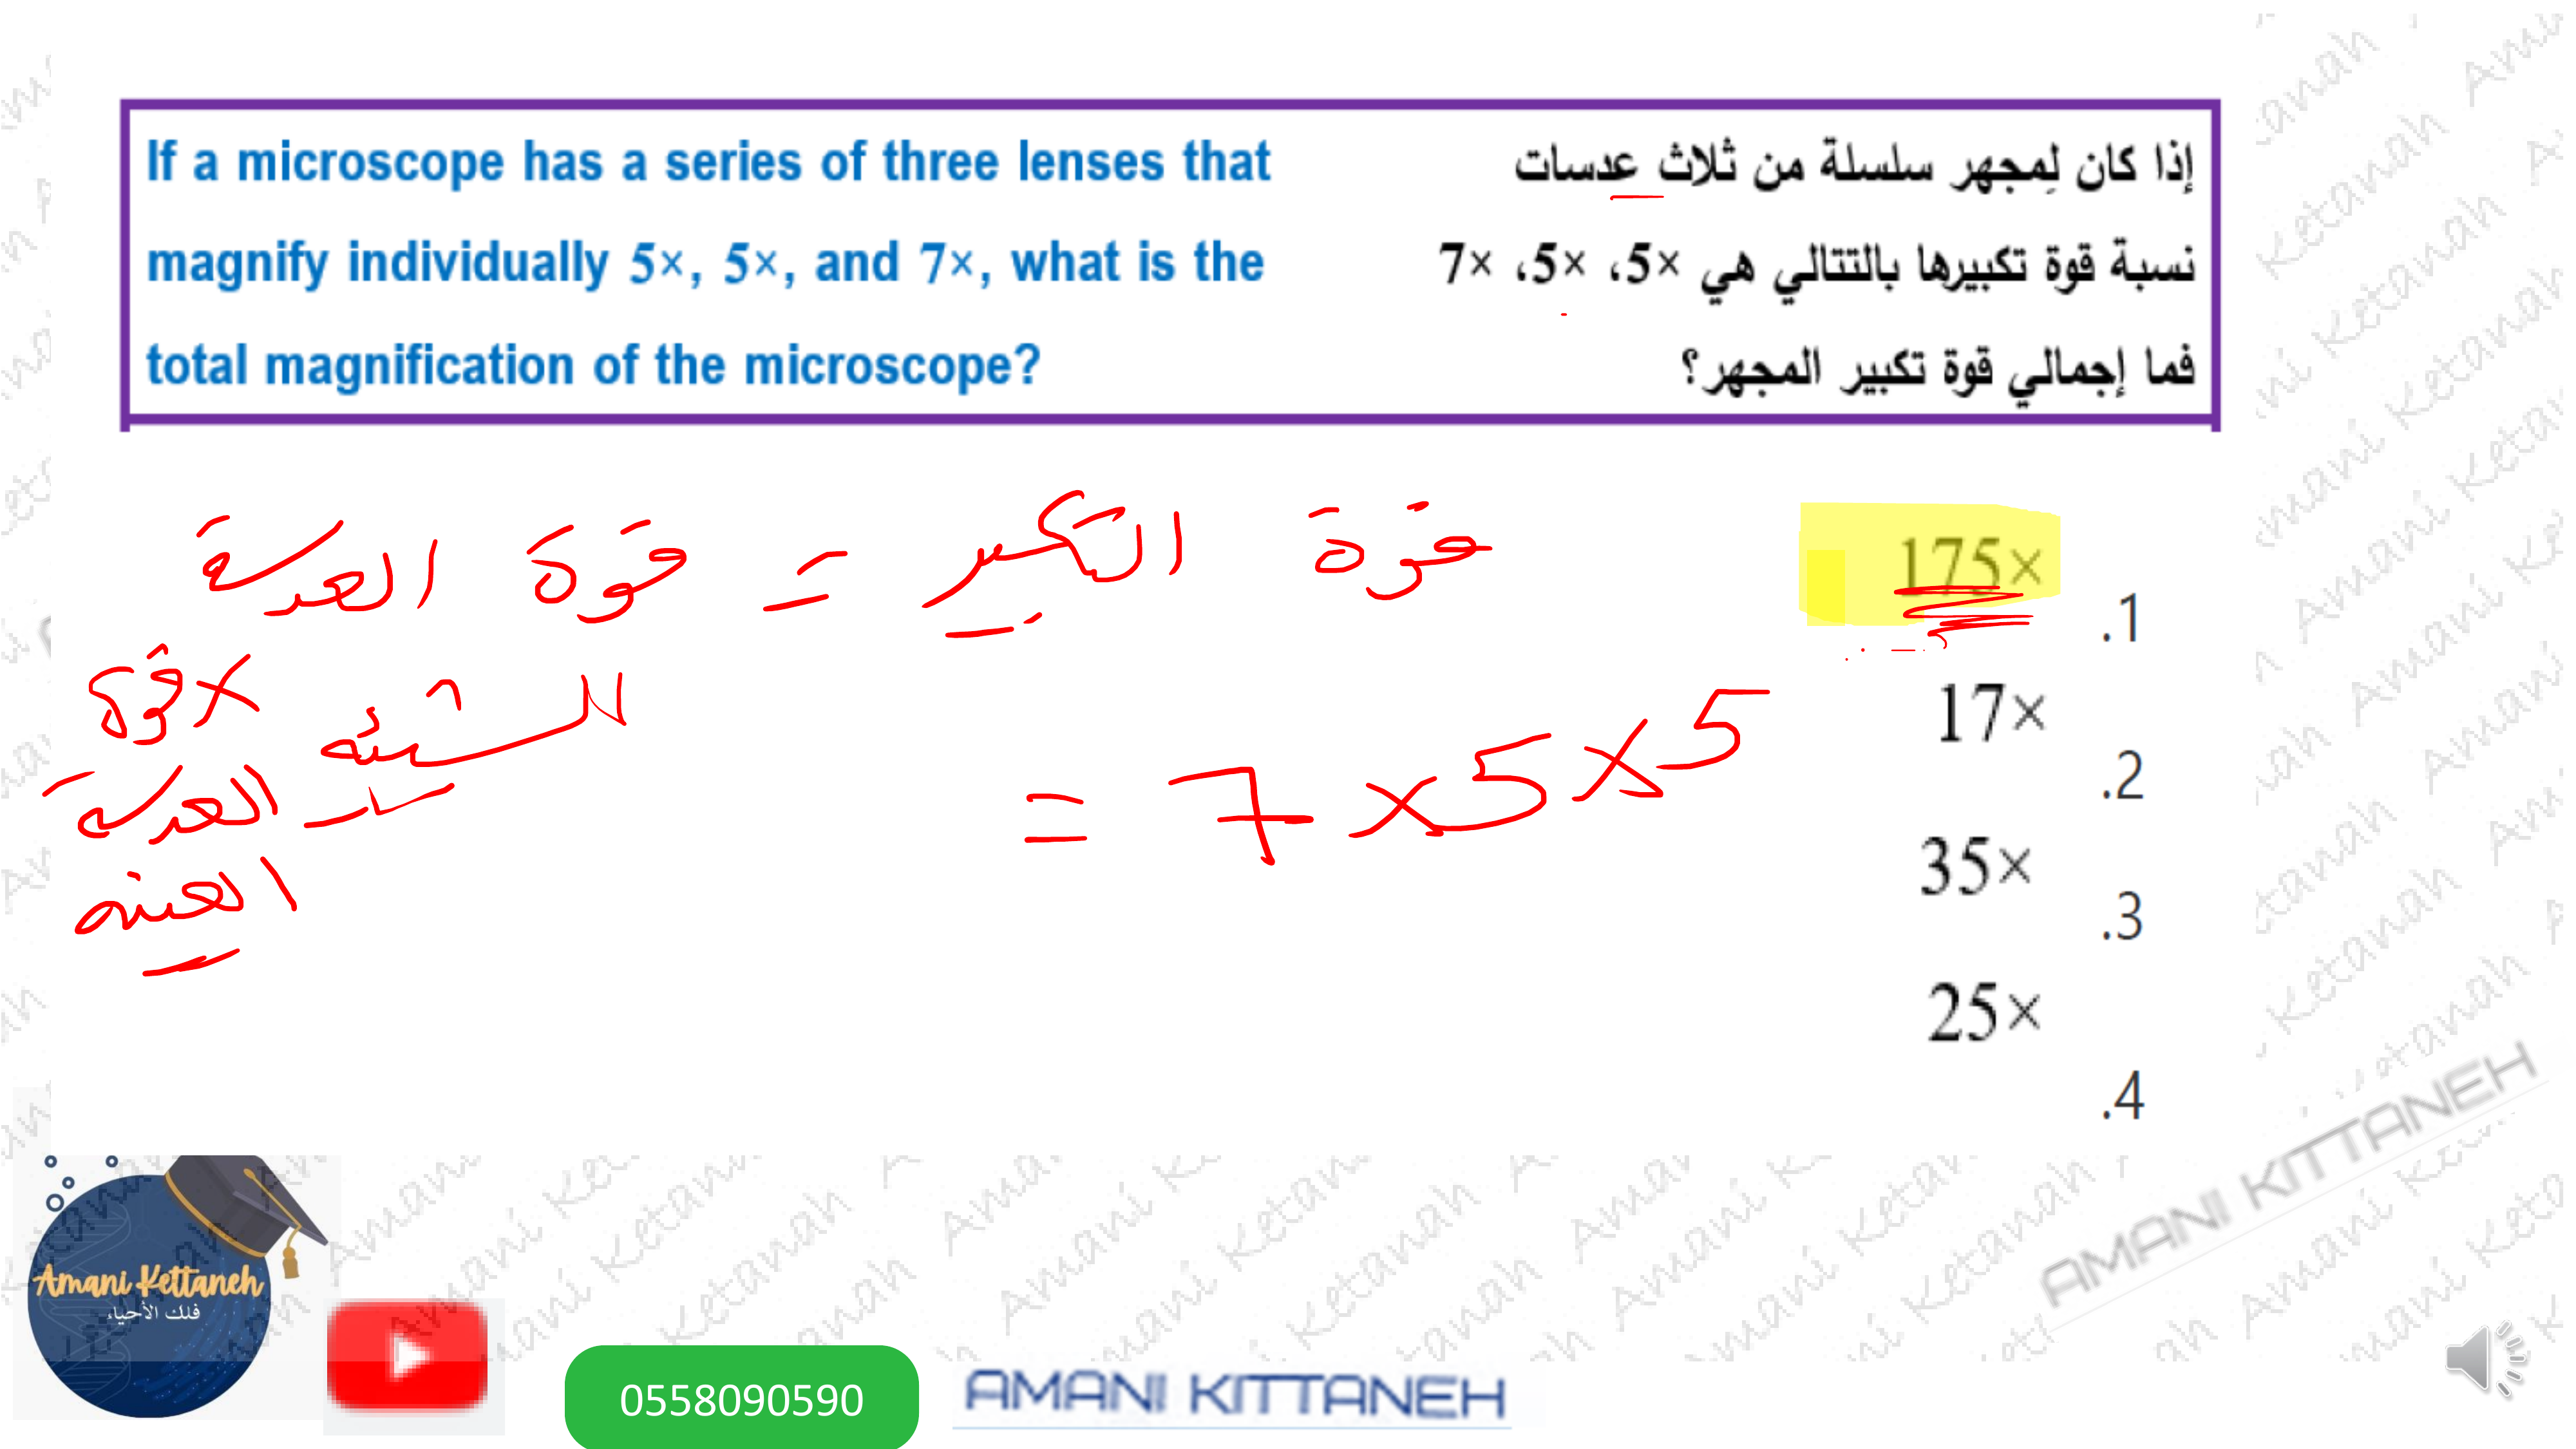 If a microscope has a series of three lenses that
magnify individually 5×, 5×, and 7×, what is the
total magnification of the microscope?
إذا كان لِمجهر سلسلة من ثلاث عدسات
نسبة قوة تكبيرها بالتتالي هي ×5، ×5، ×7
فما إجمالي قوة تكبير المجهر؟
قوة التكبير = قوة العدسة
الشيئية × قوة
العدسة
العينية
= 7 × 5 × 5
175× .1
17× .2
35× .3
25× .4
Amani Kettaneh
فلك الأحياء
0558090590
AMANI KITTANEH
AMANI KITTANEH